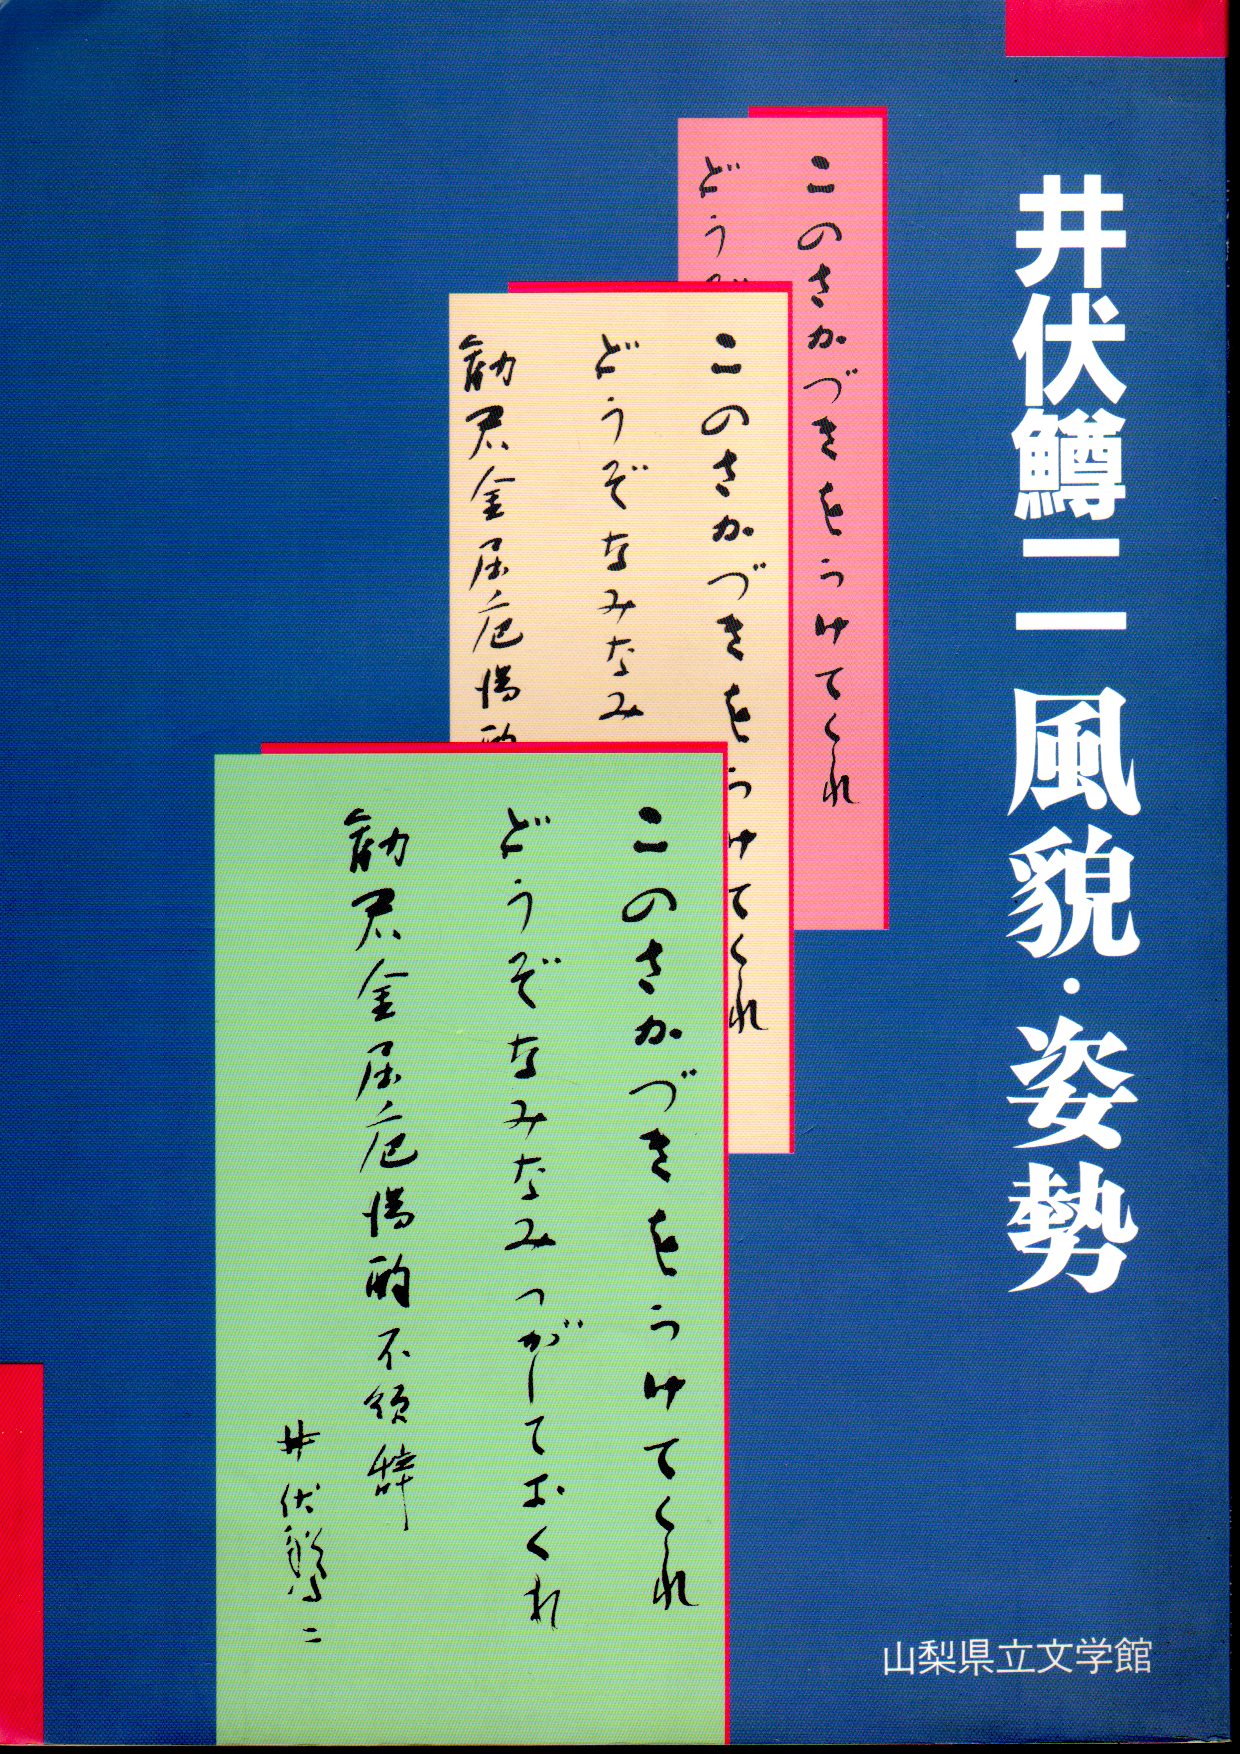 井伏鱒二 風貌・姿勢
このさかづきをうけてくれ
どうぞ
このさかづきをうけてくれ
どうぞなみなみ
勧君金屈巵満酌
このさかづきをうけてくれ
どうぞなみなみつがしておくれ
勧君金屈巵満酌不須辞
井伏鱒二
山梨県立文学館